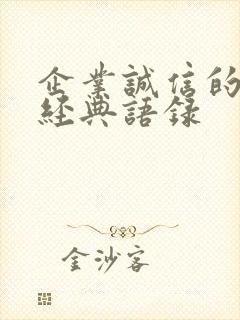 企業誠信的
經典語録
金沙客